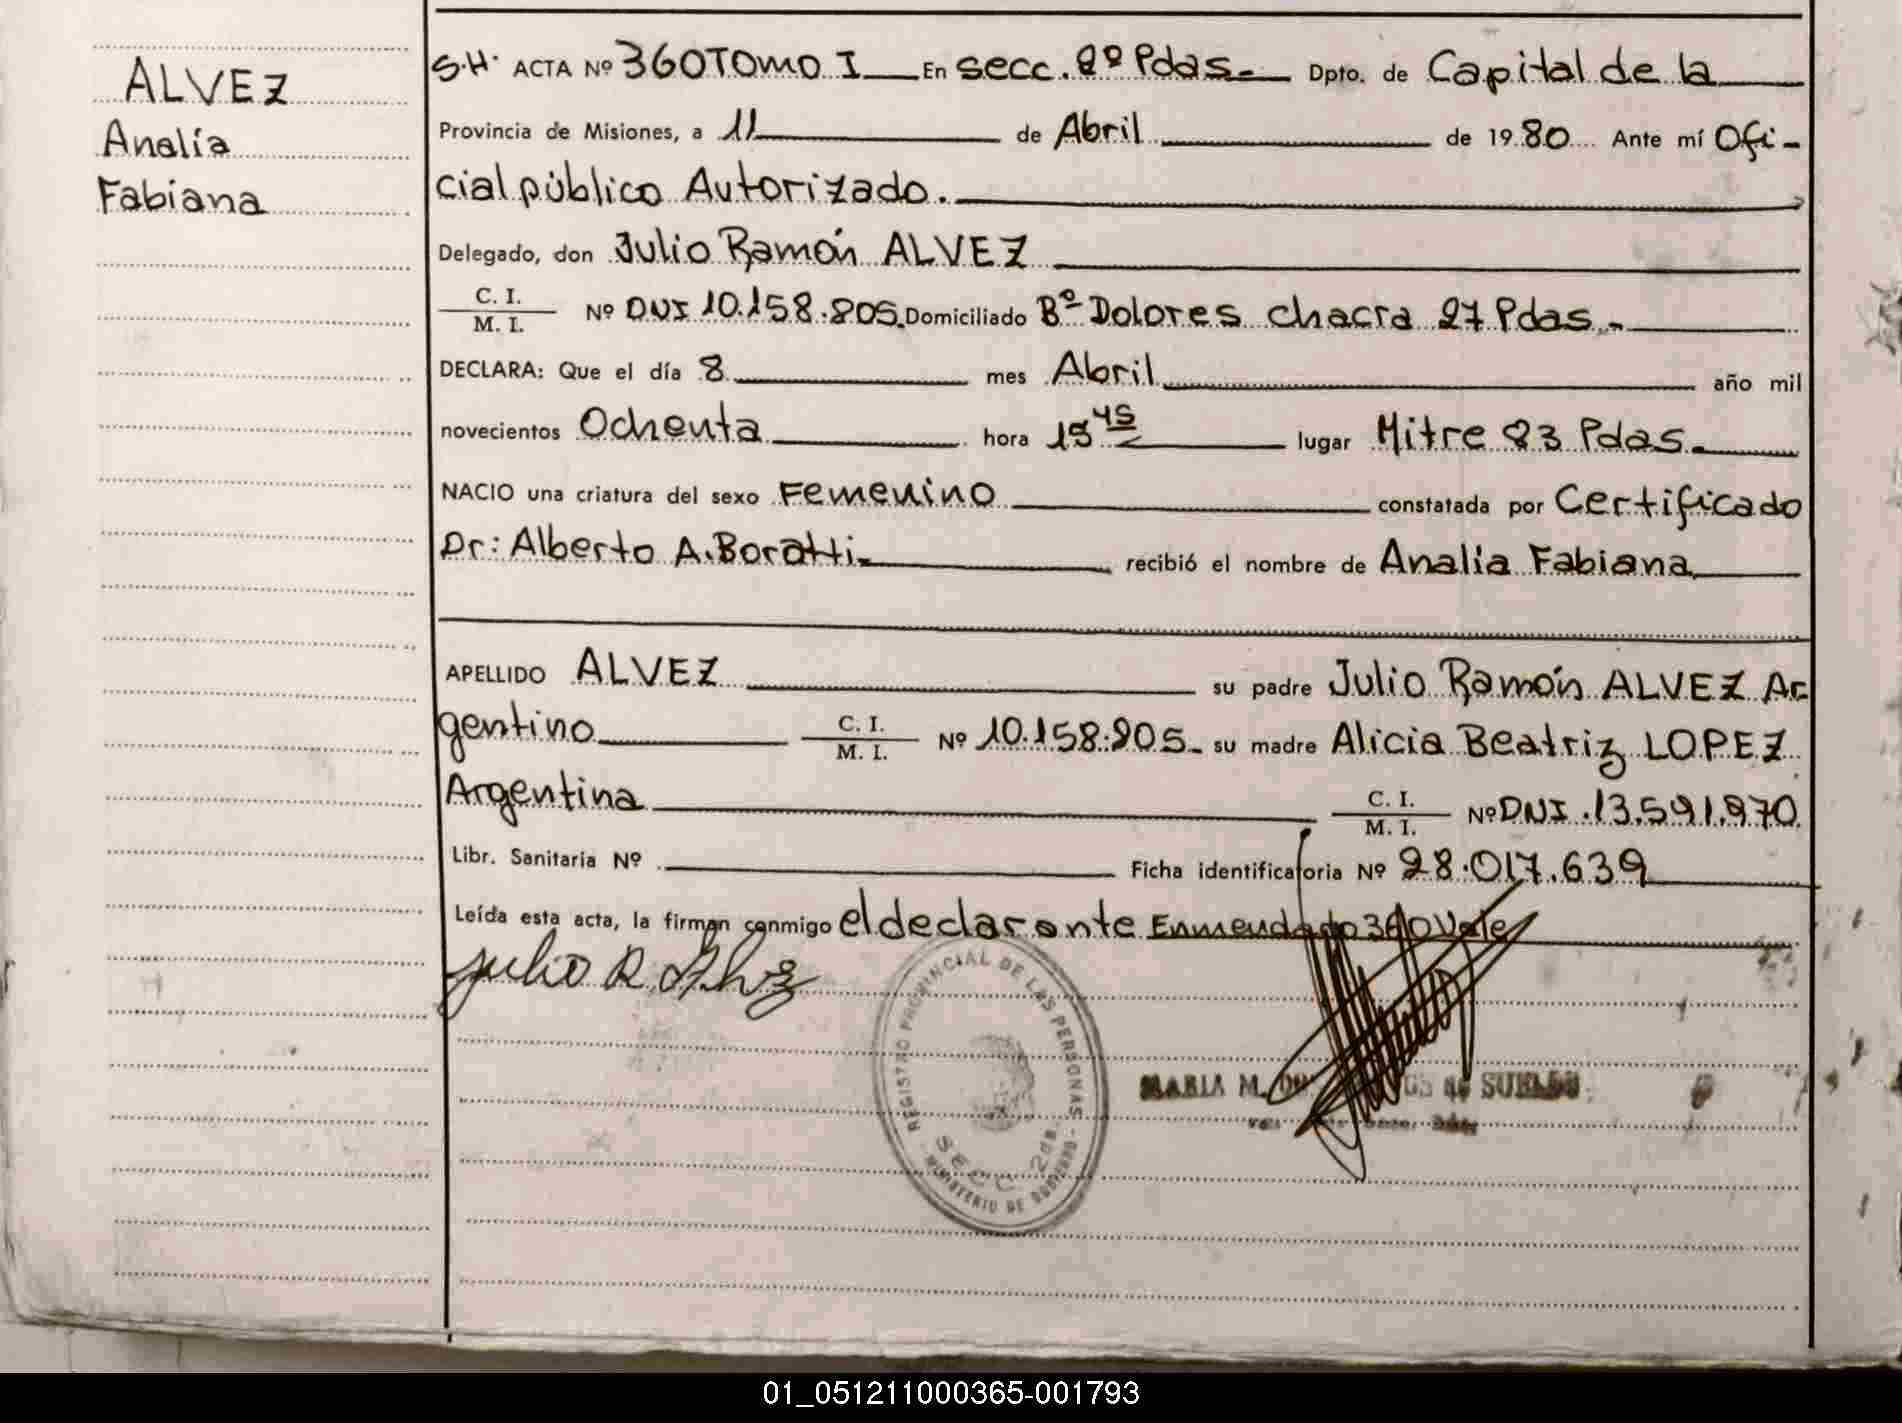 ALVEZ
Analía
Fabiana
S.H. ACTA Nº 360 TOMO I En secc. 2º Pdas. Dpto. de Capital de la
Provincia de Misiones, a 11 de Abril de 1980 Ante mí Ofi-
cial público Autorizado.
Delegado, don Julio Ramón ALVEZ
C. I.
M. I. Nº DNI 10.158.205. Domiciliado Bº Dolores chacra 27 Pdas.
DECLARA: Que el día 8 mes Abril año mil
novecientos Ochenta hora 15 45 lugar Mitre 23 Pdas.
NACIO una criatura del sexo Femenino constatada por Certificado
Dr: Alberto A. Boratti recibió el nombre de Analía Fabiana
APELLIDO ALVEZ su padre Julio Ramón ALVEZ Ar
gentino C. I.
M. I. Nº 10.158.205. su madre Alicia Beatriz LOPEZ
Argentina C. I.
M. I. Nº DNI. 13.591.970
Libr. Sanitaria Nº Ficha identificatoria Nº 28.017.639
Leída esta acta, la firman conmigo el declarante Enmendado 360 Vale
Julio R. Alvez
REGISTRO PROVINCIAL DE LAS PERSONAS
SECC 2da.
MINISTERIO DE GOBIERNO
MARIA M. de SUELDO
01_051211000365-001793